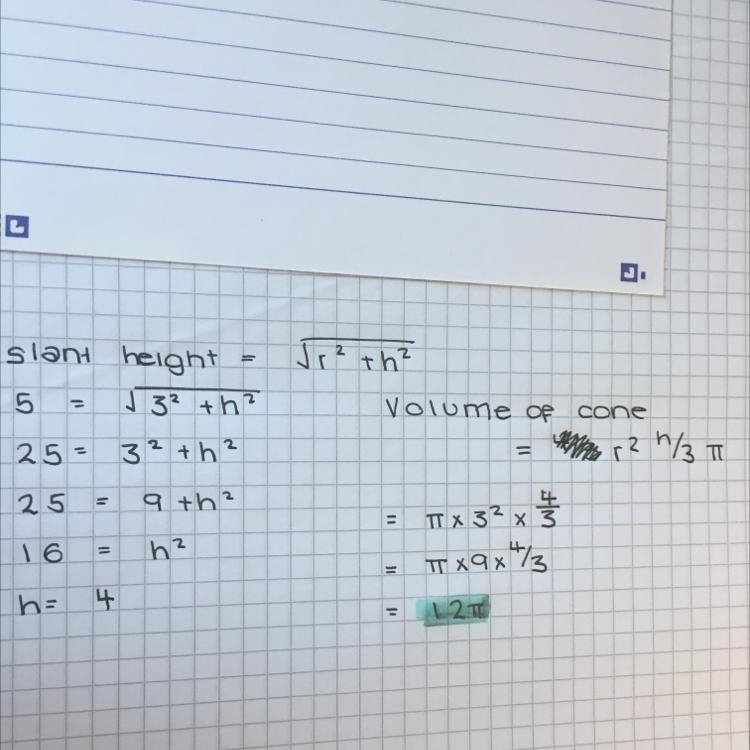 slant height = √r² + h²
5 = √3² + h²
25 = 3² + h²
25 = 9 + h²
16 = h²
h = 4
Volume of cone
= r² h/3 π
= π × 3² × 4/3
= π × 9 × 4/3
= 12π